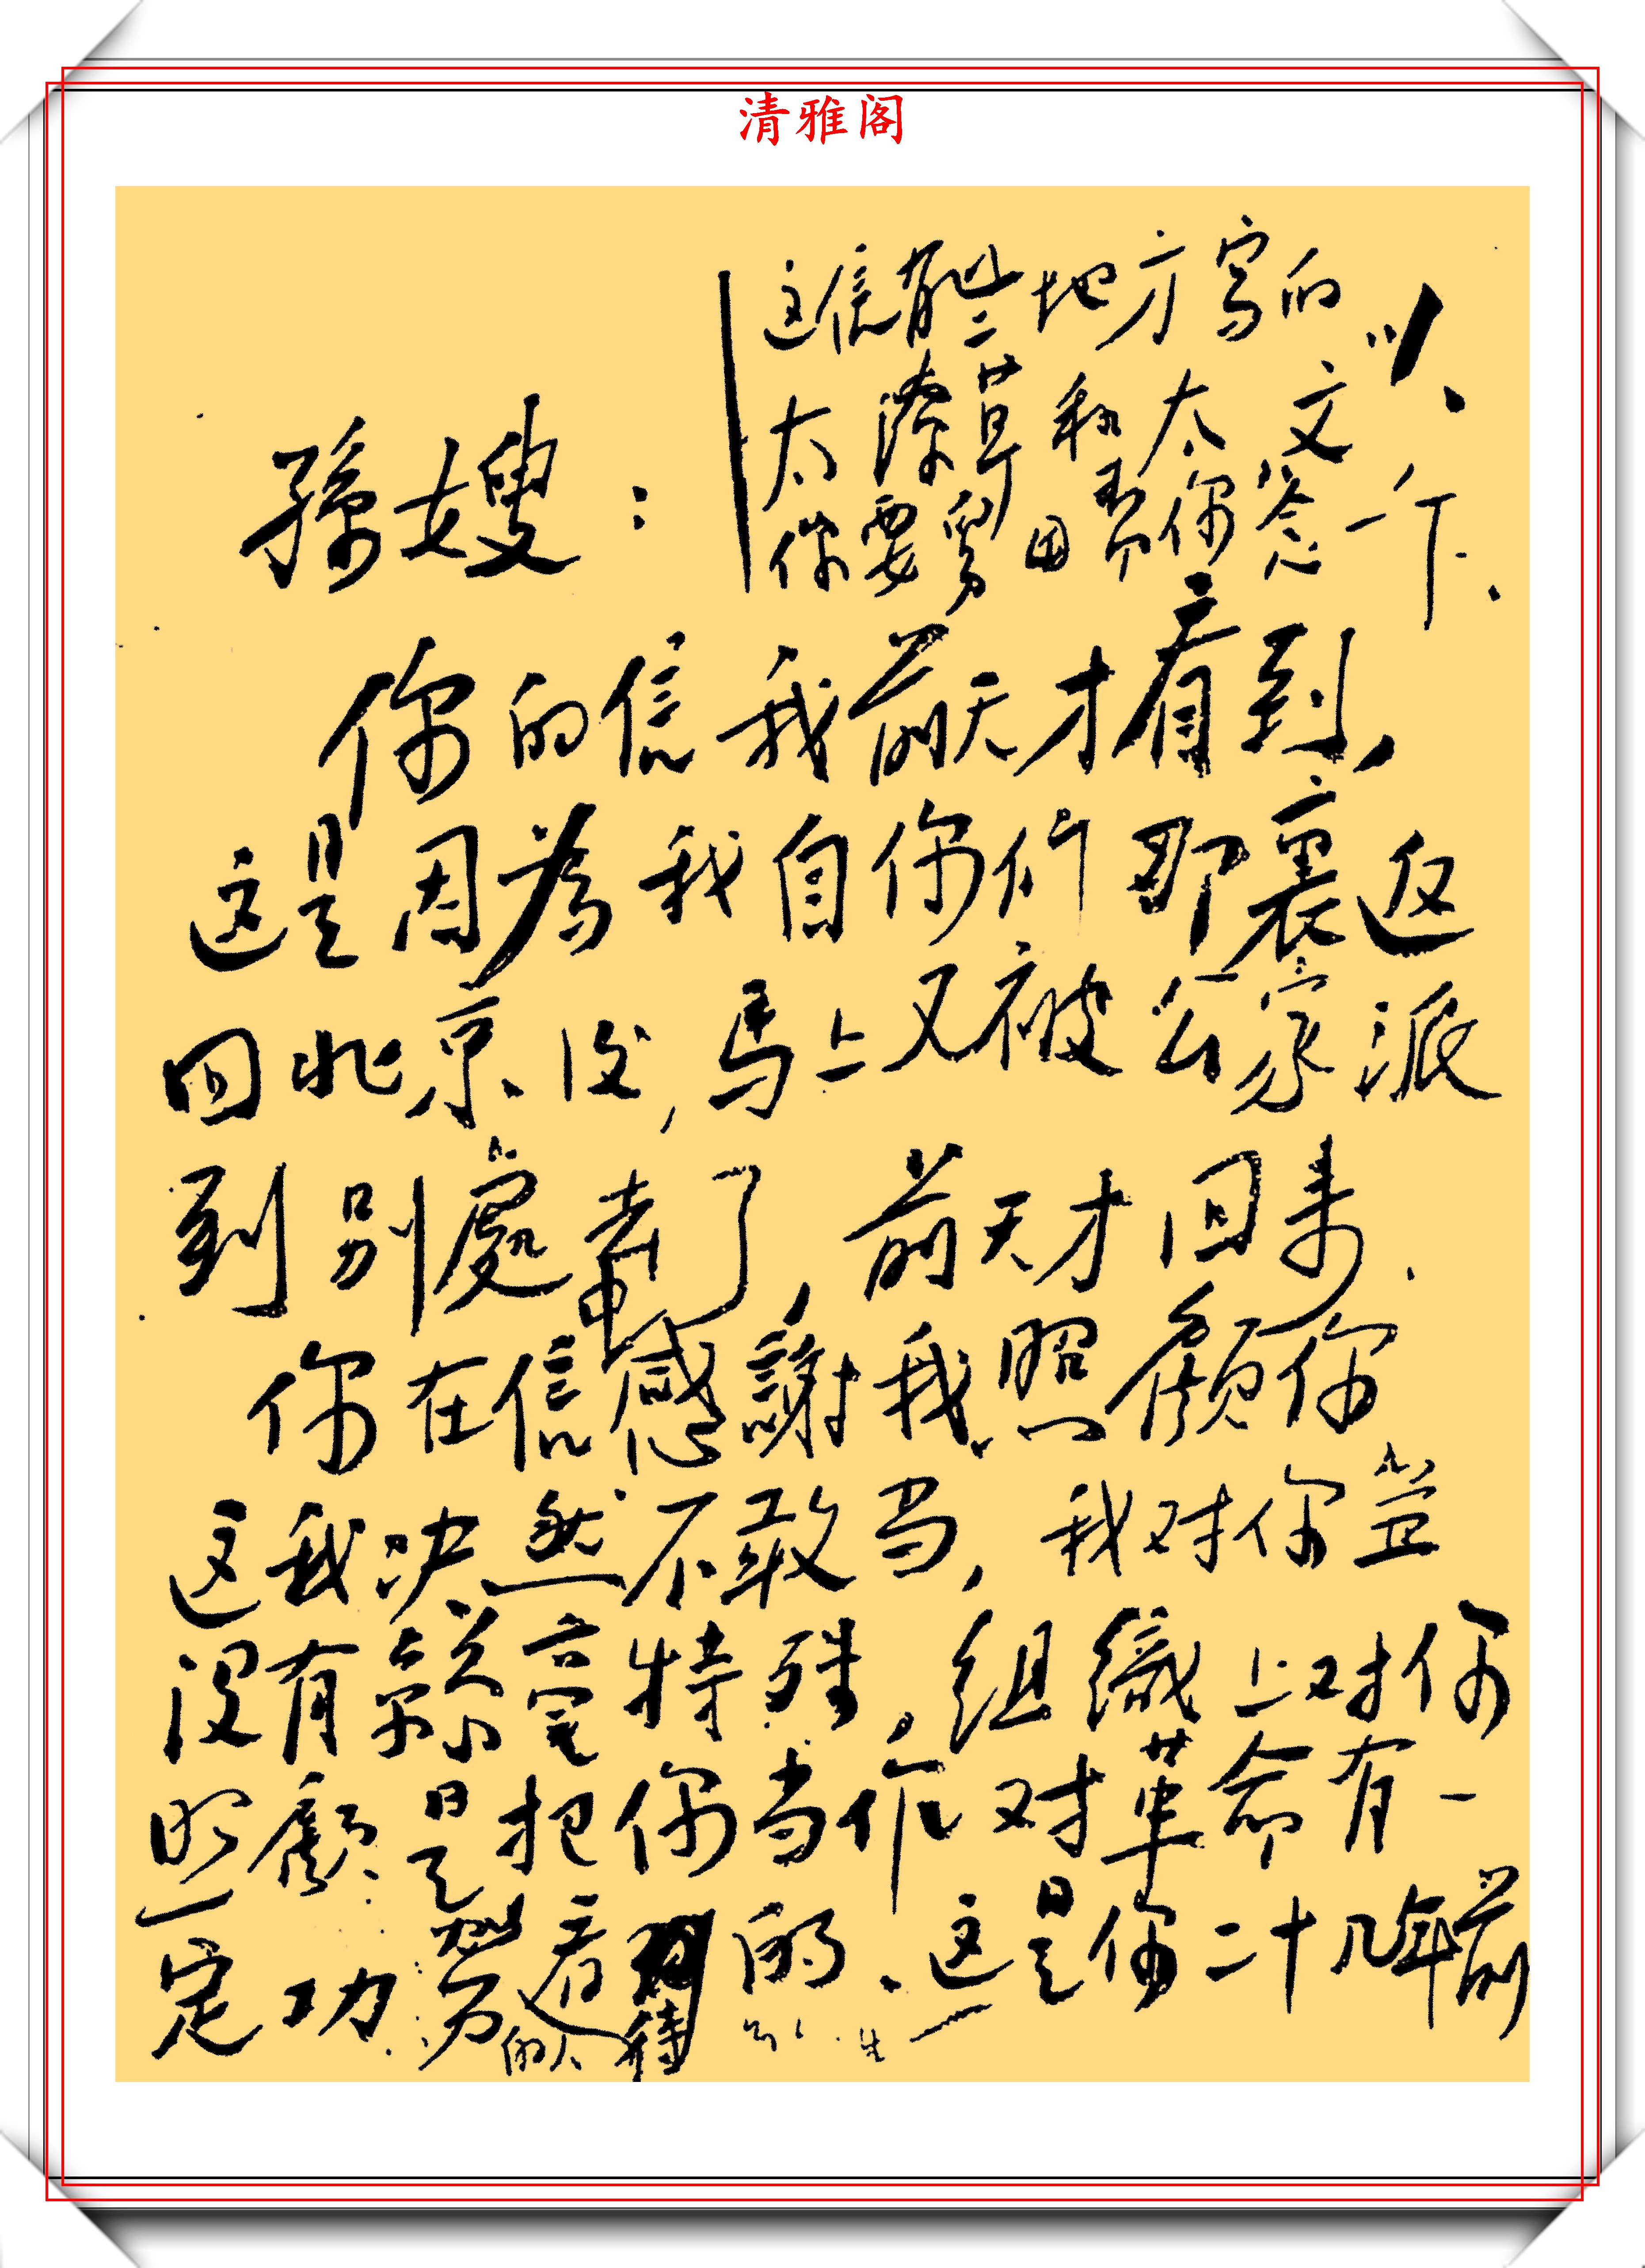 清雅阁
这信有些地方写的
太潦草和太文
你要多用点你念一下
孫嫂：
你的信我前天才看到，
这是因為我自你们那裏返
回北京后，馬上又被公家派
到别處去了，前天才回来．
你在信中感謝我照顧你
这我决然不敢当，我对你並
没有絲毫特殊，组織上对你
照顧是把你当作对革命有一
定功劳的人看待的．这是你二十几年前